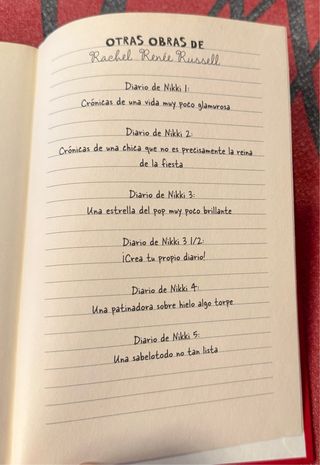 OTRAS OBRAS DE
Rachel Renée Russell
Diario de Nikki 1:
Crónicas de una vida muy poco glamurosa
Diario de Nikki 2:
Crónicas de una chica que no es precisamente la reina
de la fiesta
Diario de Nikki 3:
Una estrella del pop muy poco brillante
Diario de Nikki 3 1/2:
¡Crea tu propio diario!
Diario de Nikki 4:
Una patinadora sobre hielo algo torpe
Diario de Nikki 5:
Una sabelotodo no tan lista